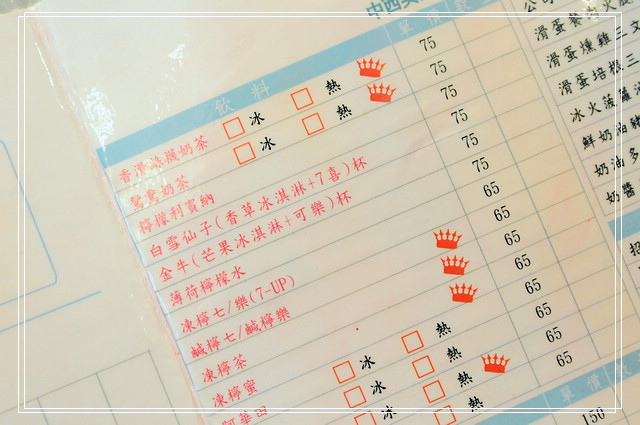 飲料 單價
香港絲襪奶茶 冰 熱 75
鴛鴦奶茶 冰 熱 75
檸檬利賓納 75
白雪仙子(香草冰淇淋+7喜)杯 75
金牛(芒果冰淇淋+可樂)杯 75
薄荷檸檬水 65
凍檸七/樂(7-UP) 65
鹹檸七/鹹檸樂 65
凍檸茶 65
凍檸蜜 65
冰 熱 65
冰 熱 65
冰 熱 65
單價
150
滑蛋燻雞三文
滑蛋培根三
冰火菠蘿油
鮮奶油豬
奶油多
奶醬